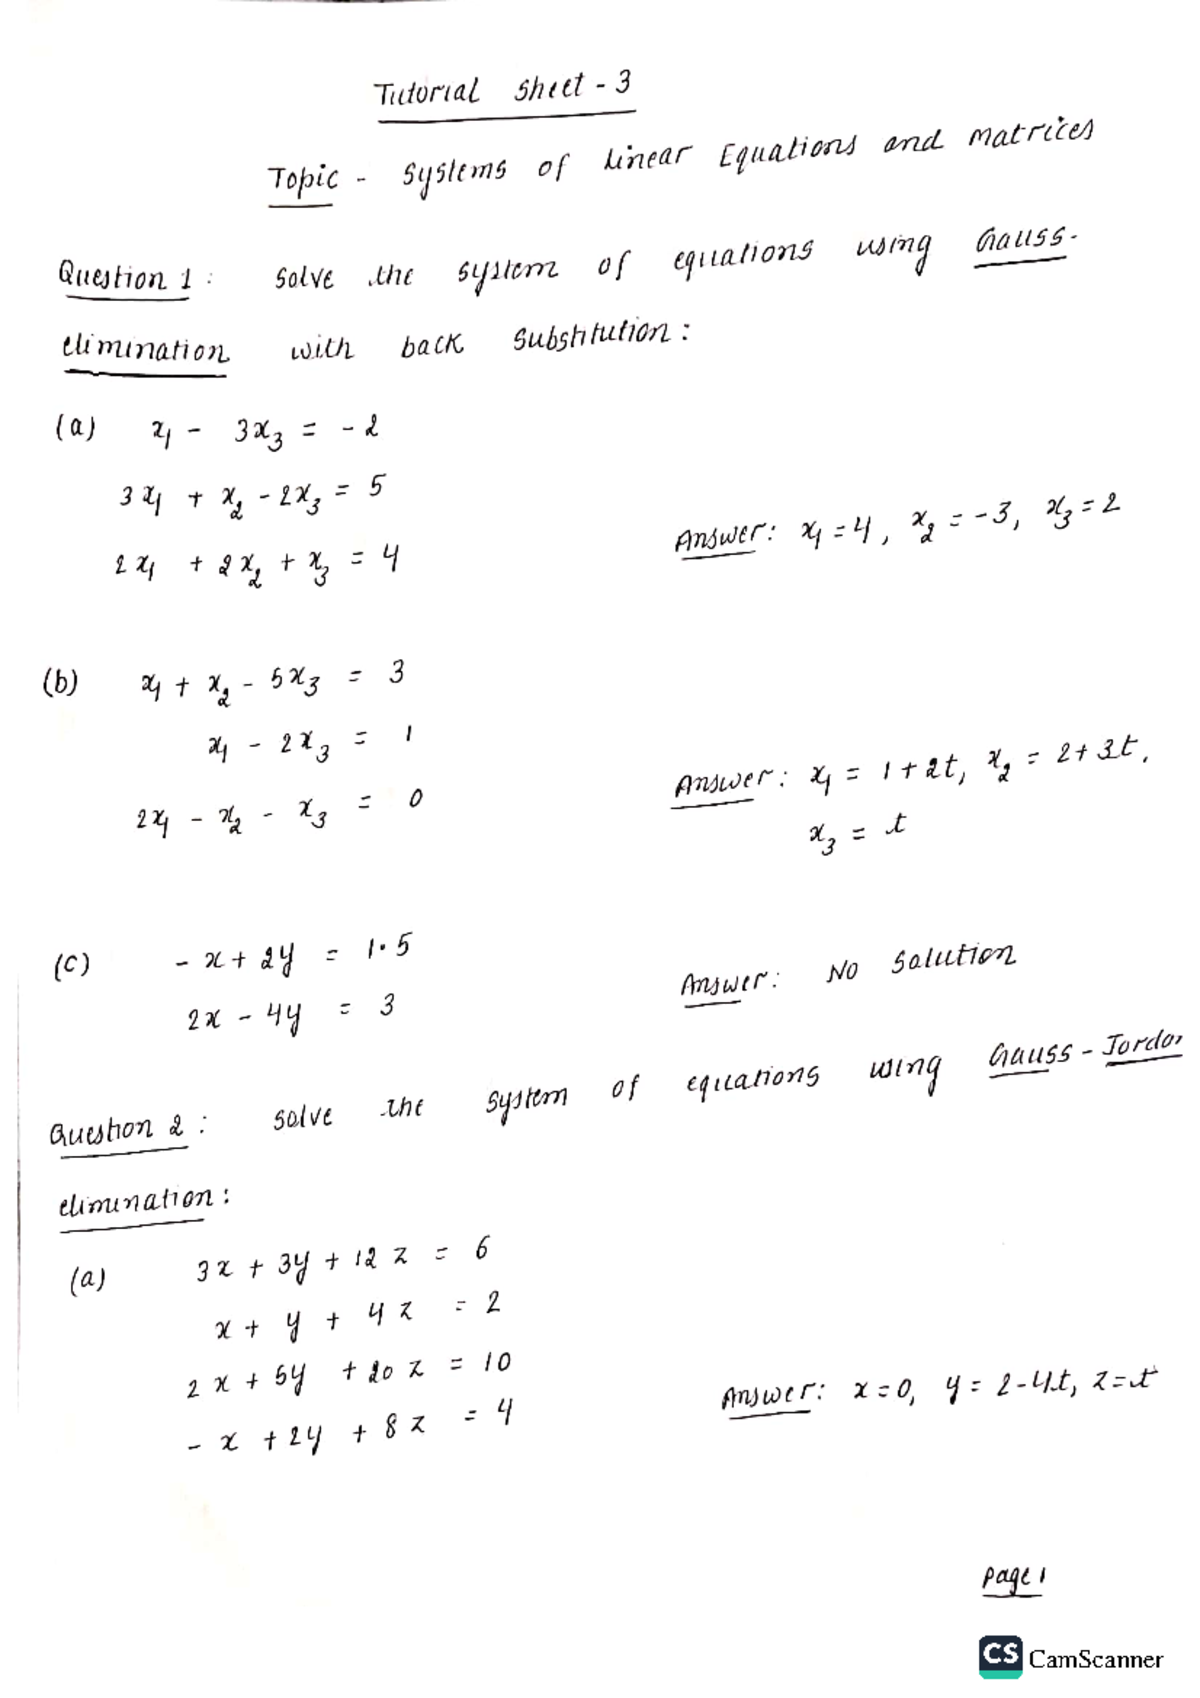 Tutorial Sheet - 3
Topic - Systems of Linear Equations and Matrices
Question 1 : Solve the system of equations using Gauss-
elimination with back substitution :
(a) x₁ - 3x₃ = -2
3x₁ + x₂ - 2x₃ = 5
2x₁ + 2x₂ + x₃ = 4
Answer: x₁ = 4, x₂ = -3, x₃ = 2
(b) x₁ + x₂ - 5x₃ = 3
x₁ - 2x₃ = 1
2x₁ - x₂ - x₃ = 0
Answer: x₁ = 1 + 2t, x₂ = 2 + 3t,
x₃ = t
(c) -x + 2y = 1.5
2x - 4y = 3
Answer: No Solution
Question 2 : Solve the system of equations using Gauss - Jordon
elimination :
(a) 3x + 3y + 12z = 6
x + y + 4z = 2
2x + 5y + 20z = 10
-x + 2y + 8z = 4
Answer: x = 0, y = 2 - 4t, z = t
Page 1
CS CamScanner